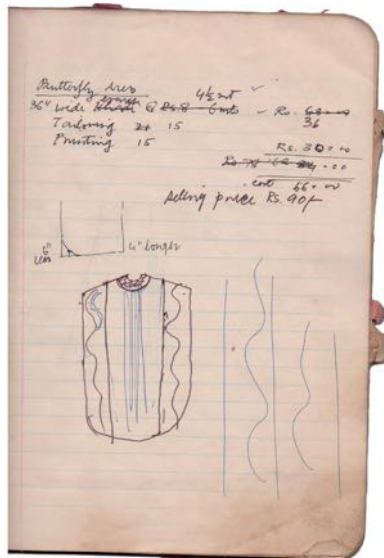 Butterfly dress
4½ mt
36" wide @ Rs. 8 - 6 mts - Rs. 36
Tailoring 15
Printing 15
Rs. 30.00
cost 66.00
Selling price Rs. 90/-
6" less
4" longer